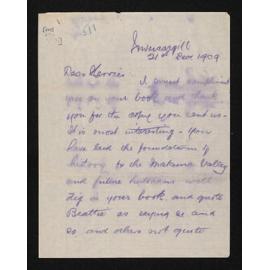 Invercargill
21st Dec 1909
Dear Herries
I must compliment
you on your book and thank
you for the copy you sent us -
It is most interesting - You
have laid the foundation of
history for the Mataura Valley
and future historians will
dig in your book and quote
Beattie as saying so and
so and others not quote